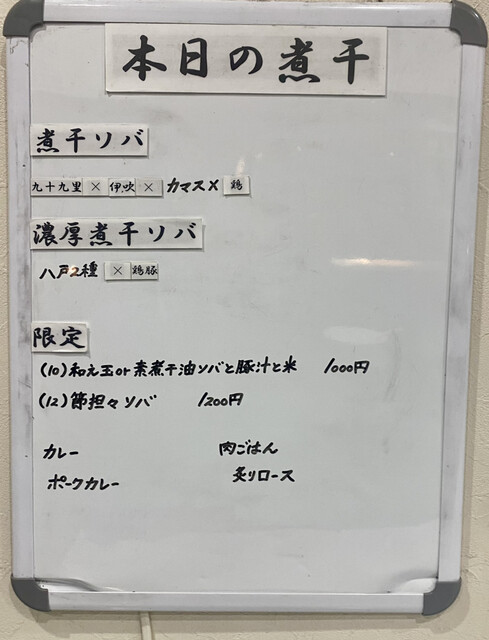 本日の煮干
煮干ソバ
九十九里 × 伊吹 × カマス × 鶏
濃厚煮干ソバ
八戸2種 × 鶏豚
限定
(10)和え玉or素煮干油ソバと豚汁と米 1000円
(12)節担々ソバ 1200円
カレー 肉ごはん
ポークカレー 炙りロース